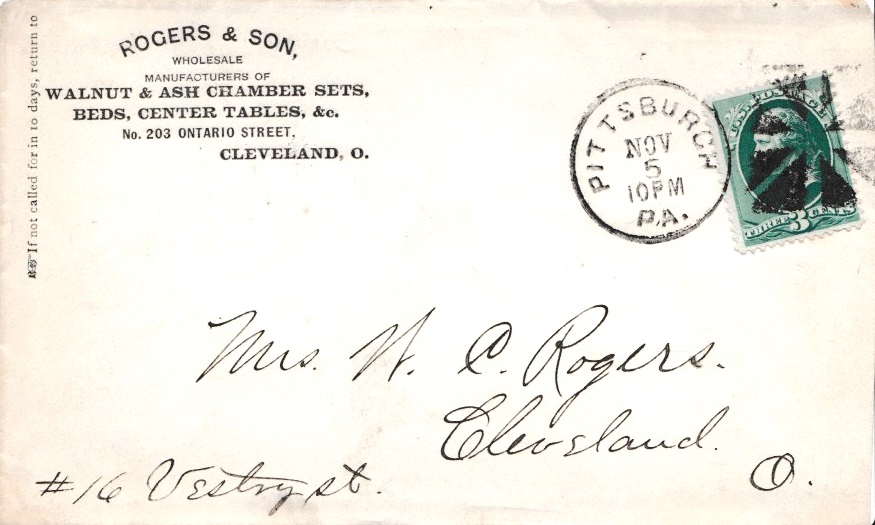 If not called for in 10 days, return to
ROGERS & SON,
WHOLESALE
MANUFACTURERS OF
WALNUT & ASH CHAMBER SETS,
BEDS, CENTER TABLES, &c.
No. 203 ONTARIO STREET,
CLEVELAND, O.
PITTSBURGH
NOV
5
10PM
P.A.
U.S. POSTAGE
THREE 3 CENTS
Mrs. W. C. Rogers.
Cleveland.
O.
#16 Vestry st.